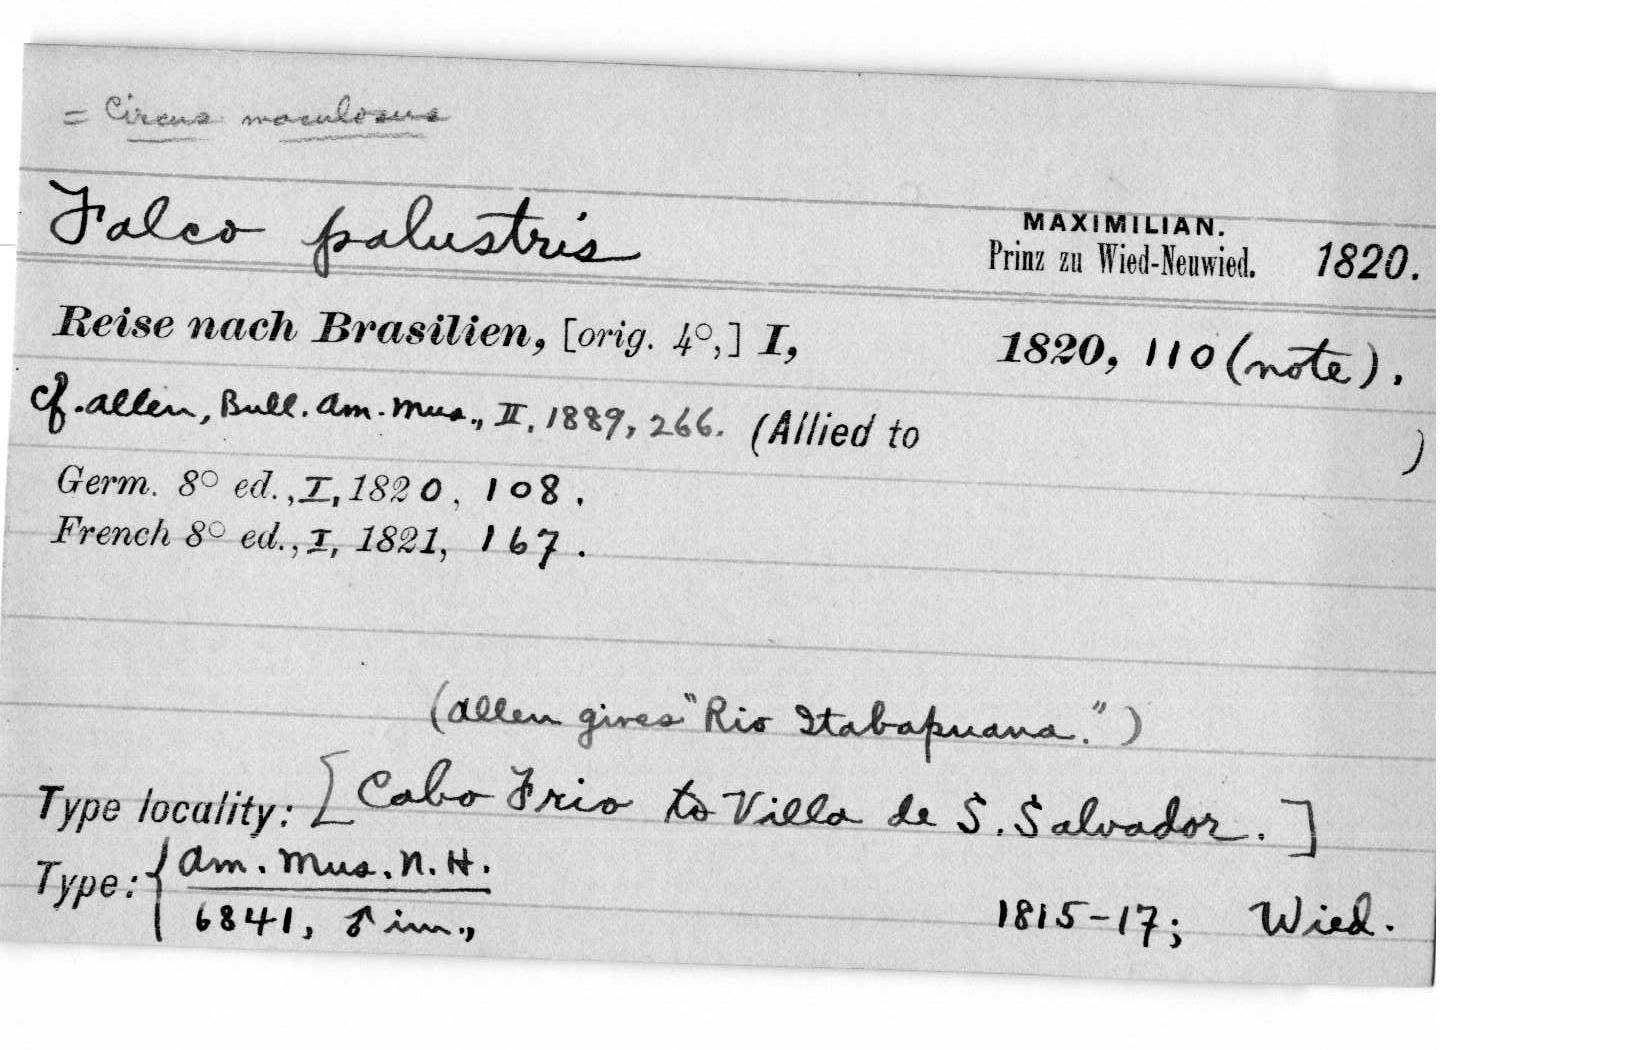 = Circus maculosus
Falco palustris
MAXIMILIAN.
Prinz zu Wied-Neuwied. 1820.
Reise nach Brasilien, [orig. 4°,] I, 1820, 110 (note).
cf. Allen, Bull. Am. Mus., II, 1889, 266. (Allied to )
Germ. 8° ed., I, 1820, 108.
French 8° ed., I, 1821, 167.
(Allen gives "Rio Itabapuana.")
Type locality: [Cabo Frio to Villa de S. Salvador.]
Type: { Am. Mus. N. H.
6841, ♂ im., 1815-17; Wied.